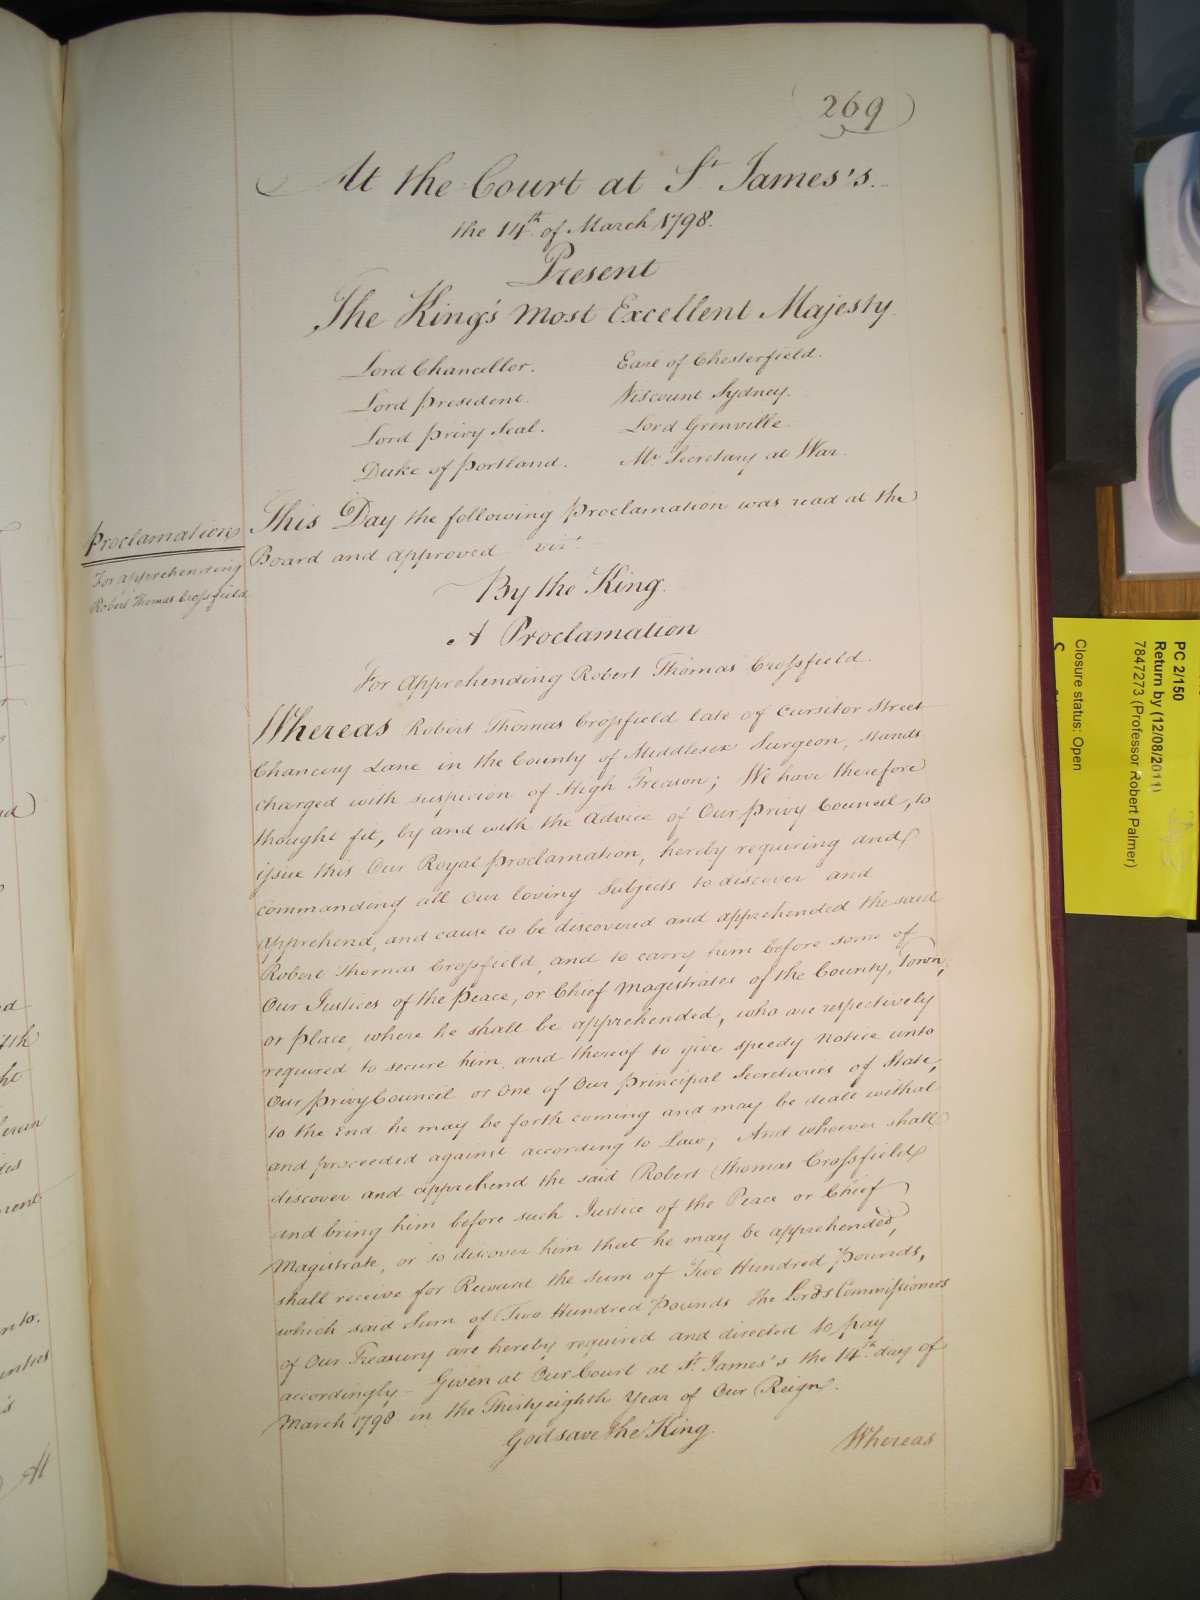 269
At the Court at St. James's.
the 14th of March 1798.
Present
The King's most Excellent Majesty
Lord Chancellor. Earl of Chesterfield.
Lord President. Viscount Sydney.
Lord Privy Seal. Lord Grenville.
Duke of Portland. Mr. Secretary at War.
Proclamations
For apprehending
Robert Thomas Crossfield
This Day the following Proclamation was read at the
Board and approved vizt.
By the King.
A Proclamation
For Apprehending Robert Thomas Crossfield.
Whereas Robert Thomas Crossfield late of Cursitor Street
Chancery Lane in the County of Middlesex Surgeon, stands
charged with suspicion of High Treason; We have therefore
thought fit, by and with the Advice of Our Privy Council, to
issue this Our Royal Proclamation, hereby requiring and
commanding all Our loving Subjects to discover and
apprehend, and cause to be discovered and apprehended the said
Robert Thomas Crossfield, and to carry him before some of
Our Justices of the Peace, or Chief Magistrates of the County, Town,
or place, where he shall be apprehended, who are respectively
required to secure him, and thereof to give speedy notice unto
Our Privy Council or One of Our Principal Secretaries of State,
to the End he may be forth coming and may be dealt withal
and proceeded against according to Law; And whoever shall
discover and apprehend the said Robert Thomas Crossfield
and bring him before such Justice of the Peace or Chief
Magistrate, or so discover him that he may be apprehended,
shall receive for Reward the sum of Two Hundred Pounds,
which said Sum of Two Hundred Pounds the Lords Commissioners
of Our Treasury are hereby required and directed to pay
accordingly. Given at Our Court at St. James's the 14th day of
March 1798 in the Thirtyeighth Year of Our Reign.
God save the King.
Whereas
PC 2/150
Return by (12/08/2011)
7847273 (Professor Robert Palmer)
Closure status: Open